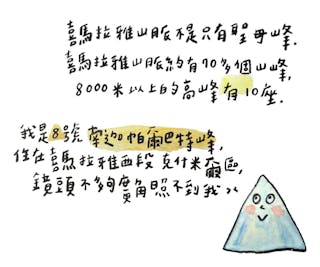 喜馬拉雅山脈不是只有聖母峰.
喜馬拉雅山脈約有70多個山峰,
8000米以上的高峰有10座.
我是8號 南迦帕爾巴特峰,
住在喜馬拉雅西段克什米爾區,
鏡頭不夠廣角照不到我